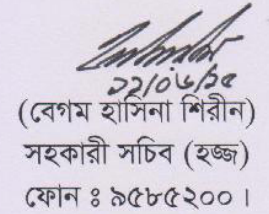 ২২/০৬/১৫
(বেগম হাসিনা শিরীন)
সহকারী সচিব (হজ্জ)
ফোন ঃ ৯৫৮৫২০০।